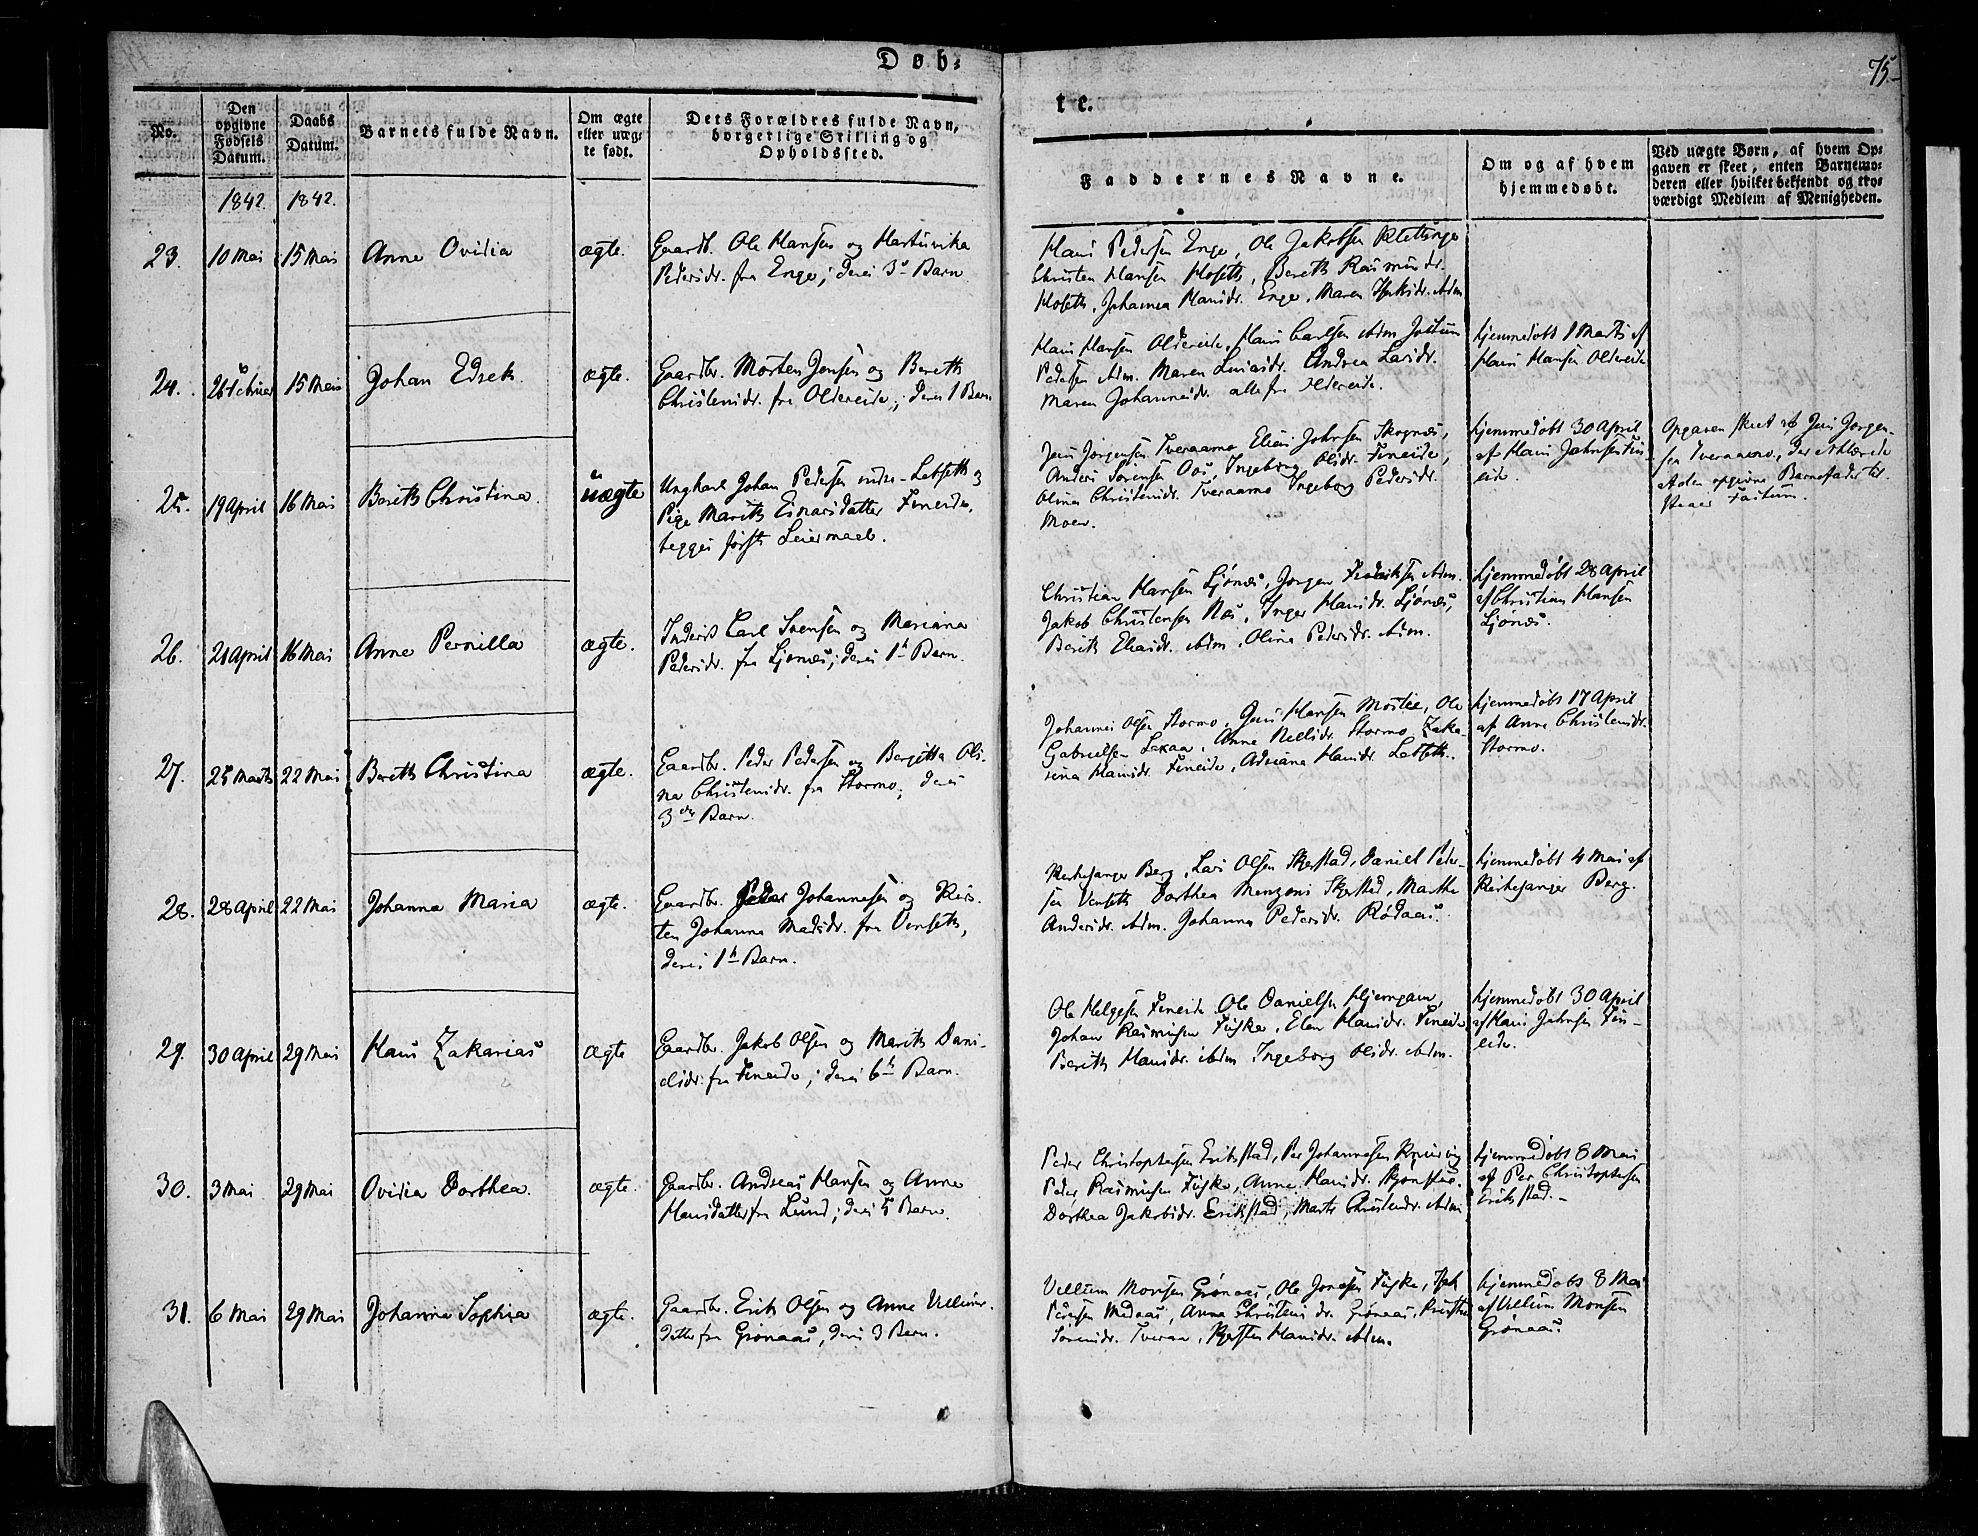 Døb-
te.
75.
No.
Den opgivne Fødsels Datum.
Daabs Datum.
Barnets fulde Navn.
Om ægte eller uæg-
te født.
Dets Forældres fulde Navn,
borgerlige Stilling og
Opholdssted.
Faddernes Navne.
Om og af hvem
hjemmedøbt.
Ved uægte Børn, af hvem Op-
gaven er skeet, enten Barnemo-
deren eller hvilket bekjendt og tro-
værdigt Medlem af Menigheden.
1842. 1842.
23. 10 Mai 15 Mai Anne Ovidia ægte.
Gaardb. Ole Hansen og
Pedersdr. fra Enge; deres 3 Barn
Hans Pedersen Enge, Ole Jakobsen Klettinge
Christen Hansen Moseth, Bereth Rasmusdr.
Moseth, Johanna Hansdr. Enge, Maren
24. 15 Mai Johan Edsek ægte.
Gaardbr. Morten Jensen og Bereth
Christensdr. fra Oldereide; deres 1 Barn.
Hans Hansen Oldereide, Hans Carlsen
Pedersen Maren Andrea Larsdr.
Maren Johannesdr. alle fra Oldereide.
hjemmedøbt 1 Marts af
Hans Hansen Oldereide
25. 19 April 16 Mai Bereth Christina. uægte
Ungkarl Johan Pedersen Lebseth og
Pige Mareth Einarsdatter Fineide,
begges første Leiermaal.
Jens Jørgensen Tveraamo Elias Johnsen Skognæs,
Anders Sørensen Ingeborg Olsdr. Fineide,
Olina Christensdr. Tveraamo Ingeborg Pedersdr.
Moen.
hjemmedøbt 30 April
af Hans Johnsen Fin-
eide.
Opgaven skeet af Jens Jørgen-
sen Tveraamo, der
opgivne Barnefader
Factum.
26. 21 April 16 Mai Anne Pernilla ægte.
Inderst Carl Svensen og Mariana
Pedersdr. fra Ljønæs; deres 1 Barn.
Christian Hansen Ljønæs, Jørgen Fredriksen
Jakob Christensen Næs, Inger Hansdr. Ljønæs,
Bereth Eliasdr. Olina Pedersdr.
hjemmedøbt 28 April
af Christian Hansen
Ljønæs.
27. 25 Marts 22 Mai Bereth Christina ægte.
Gaardbr. Peder Pedersen og Bergitta Oli-
na Christensdr. fra Stormo; deres
3die Barn.
Johannes Olsen Stormo, Jens Hansen Mostie, Ole
Gabrielsen Laxaa, Anne Nellsdr. Stormo, Zaka-
rina Hansdr. Fineide, Adriana Hansdr. Lebseth.
hjemmedøbt 17 April
af Anne Christensdr.
Stormo.
28. 28 April 22 Mai Johanna Maria ægte.
Gaardbr. Peder Johannesen og Kirs-
ten Johanna Madsdr. fra Venseth,
deres 1 Barn.
Kirkesanger Berg, Lars Olsen Skjerstad, Daniel Peder-
sen Venseth Dorthea Menzoni Skjerstad, Marthe
Andersdr. Johanna Pedersdr. Rødaas.
hjemmedøbt 4 Mai af
Kirkesanger Berg.
29. 30 April 29 Mai Hans Zakarias ægte
Gaardbr. Jakob Olsen og Mareth Dani-
elsdr. fra Fineide; deres 6 Barn.
Ole Helgesen Fineide Ole Danielsen Hjemgam,
Johan Rasmusen Fuske, Elen Hansdr. Fineide
Bereth Hansdr. Ingeborg Olsdr.
hjemmedøbt 30 April
af Hans Johnsen Fin-
eide.
30. 3 Mai 29 Mai Ovidia Dorthea. ægte.
Gaardbr. Andreas Hansen og Anne
Hansdatter fra Lund; deres 5 Barn.
Peder Christophersen Erikstad, Per Johannesen
Peder Rasmusen Fuske, Anne Hansdr.
Dorthea Jakobsdr. Erikstad,
hjemmedøbt 8 Mai
af Per Christophersen
Erikstad.
31. 6 Mai 29 Mai Johanna Sophia ægte.
Gaardbr. Erik Olsen og Anne Vellums-
datter fra Grønaas, deres 3 Barn.
Vellum Monsen Grønaas, Ole Jonsen Fuske,
Medaas, Anne Christensdr. Grønaas,
Sørensdr. Tveraa, Kjersten Hansdr.
hjemmedøbt 8 Mai
af Vellum Monsen
Grønaas.